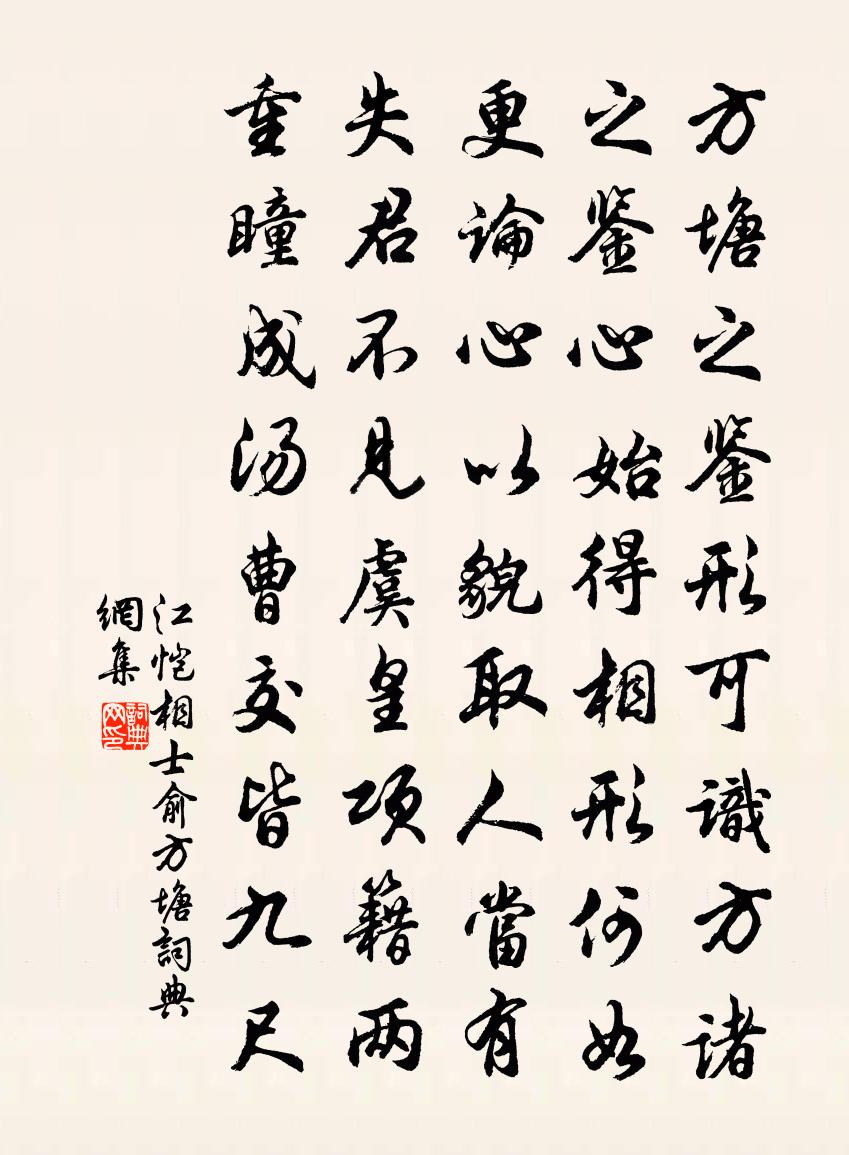 方塘之鉴形可識方諸
之鉴心始得相形何如
更論心以貌取人當有
失君不見虞皇項籍两
重瞳成汤曹交皆九尺
江愷相士俞方塘詞典
網集
詞典网印